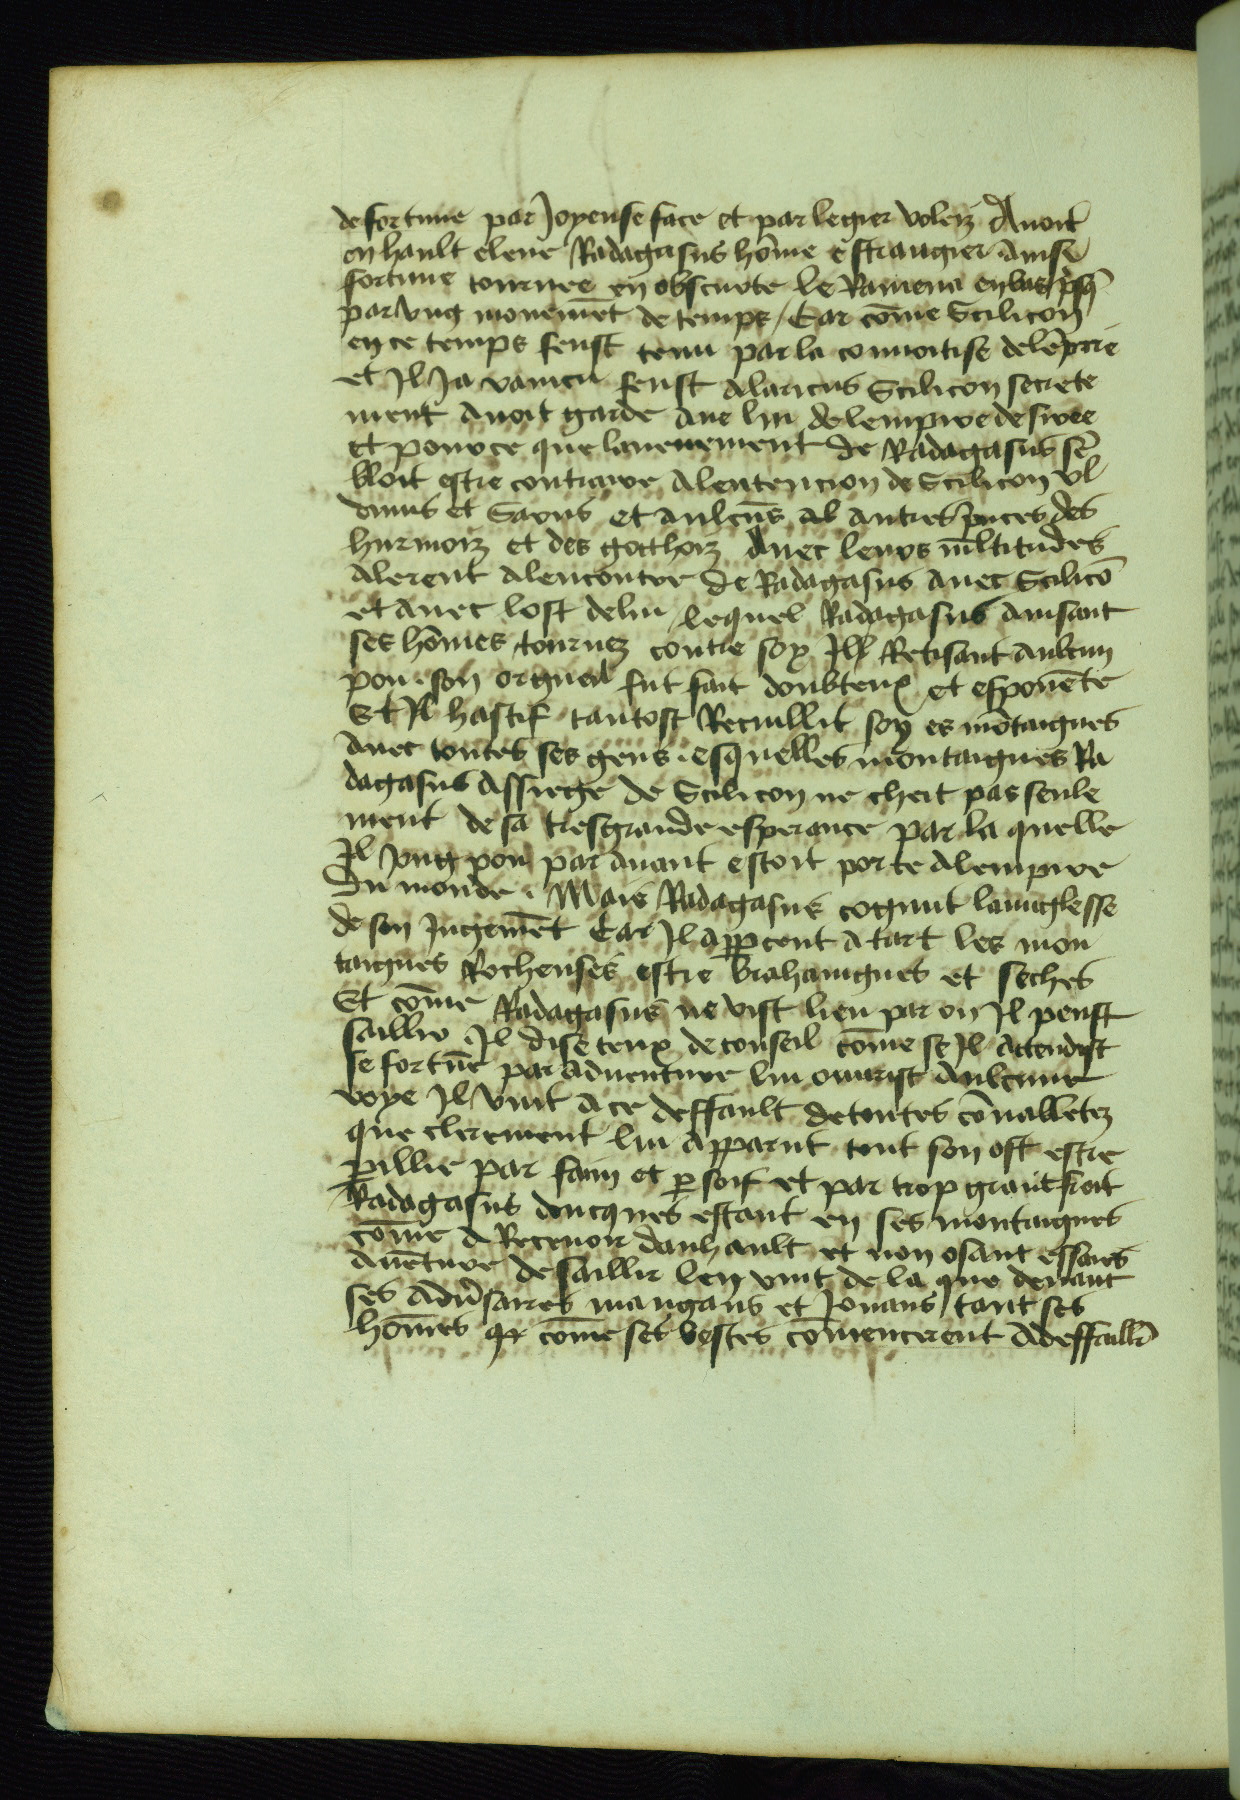 de fortune par Joyeuse face et par legier voleiz Auoit
en hault eleue Radagasus hōme estrangier Ainsi
fortune tournee en obscurte le Ramena en bas
par vng mouuemēt de temps / Car cōme Scilicon
en ce temps feust tenu par la conuoitise de lēpire
et Il Ja vaincu feust Alaricus Scilicon secrete
ment Auoit garde Aue lui de lempire de siree
et pource que lauenement de Radagasus sē
bloit estre contraire A lentencion de Scilicon vl
dinus et Sarus et Aulcūs Autres prices des
hurnoiz et des gotthoiz Auec leurs mltitudes
Alerent A lencontre de Radagasus Auec Scilicō
et Auec lost de lui / lequel Radagasus Auisant
ses hōmes tournez contre soy Il Retisant Aulcun
pou . son orgueil fut fait doubteux et espouēte
Et Il hastif tantost Recuillit soy es mōtaignes
Auec toutes ses gens . esquelles montaignes Ra
dagasus Assiege de Scilicon ne cheit pas seule
ment de sa tresgrande esperance par la quelle
Il vng pou par Auant estoit porte A lempire
Du monde . Mais Radagasus cognut lauuglesse
de son Jugemēt Car Il Apperceut A tart les mon
taignes Rocheuses estre brahaingnes et seches
Et cōme Radagasus ne vist lieu par ou Il peust
saillir Il diseteux de conseil cōme se Il Attendist
se fortūe par Aduenture lui ouurist Aulcune
voye Il vint A ce deffault de toutes cōualletez
que clerement lui Apparut tout son ost estre
pillie par faim et p soif et par trop grant froit
Radagasus doncques estant en ses montaignes
cōme A Receuoir danhault et non osant essaies
Auēture de saillir len vint de la que deuant
ses Adūsaires mangans et Jouans / tant ses
hōmes q cōme ses bestes cōmencerent A deffaillir